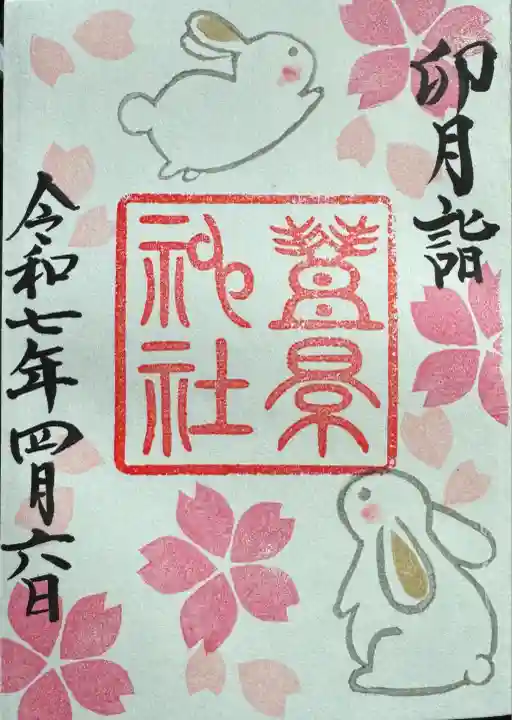 卯月詣
豐景
神社
令和七年四月六日